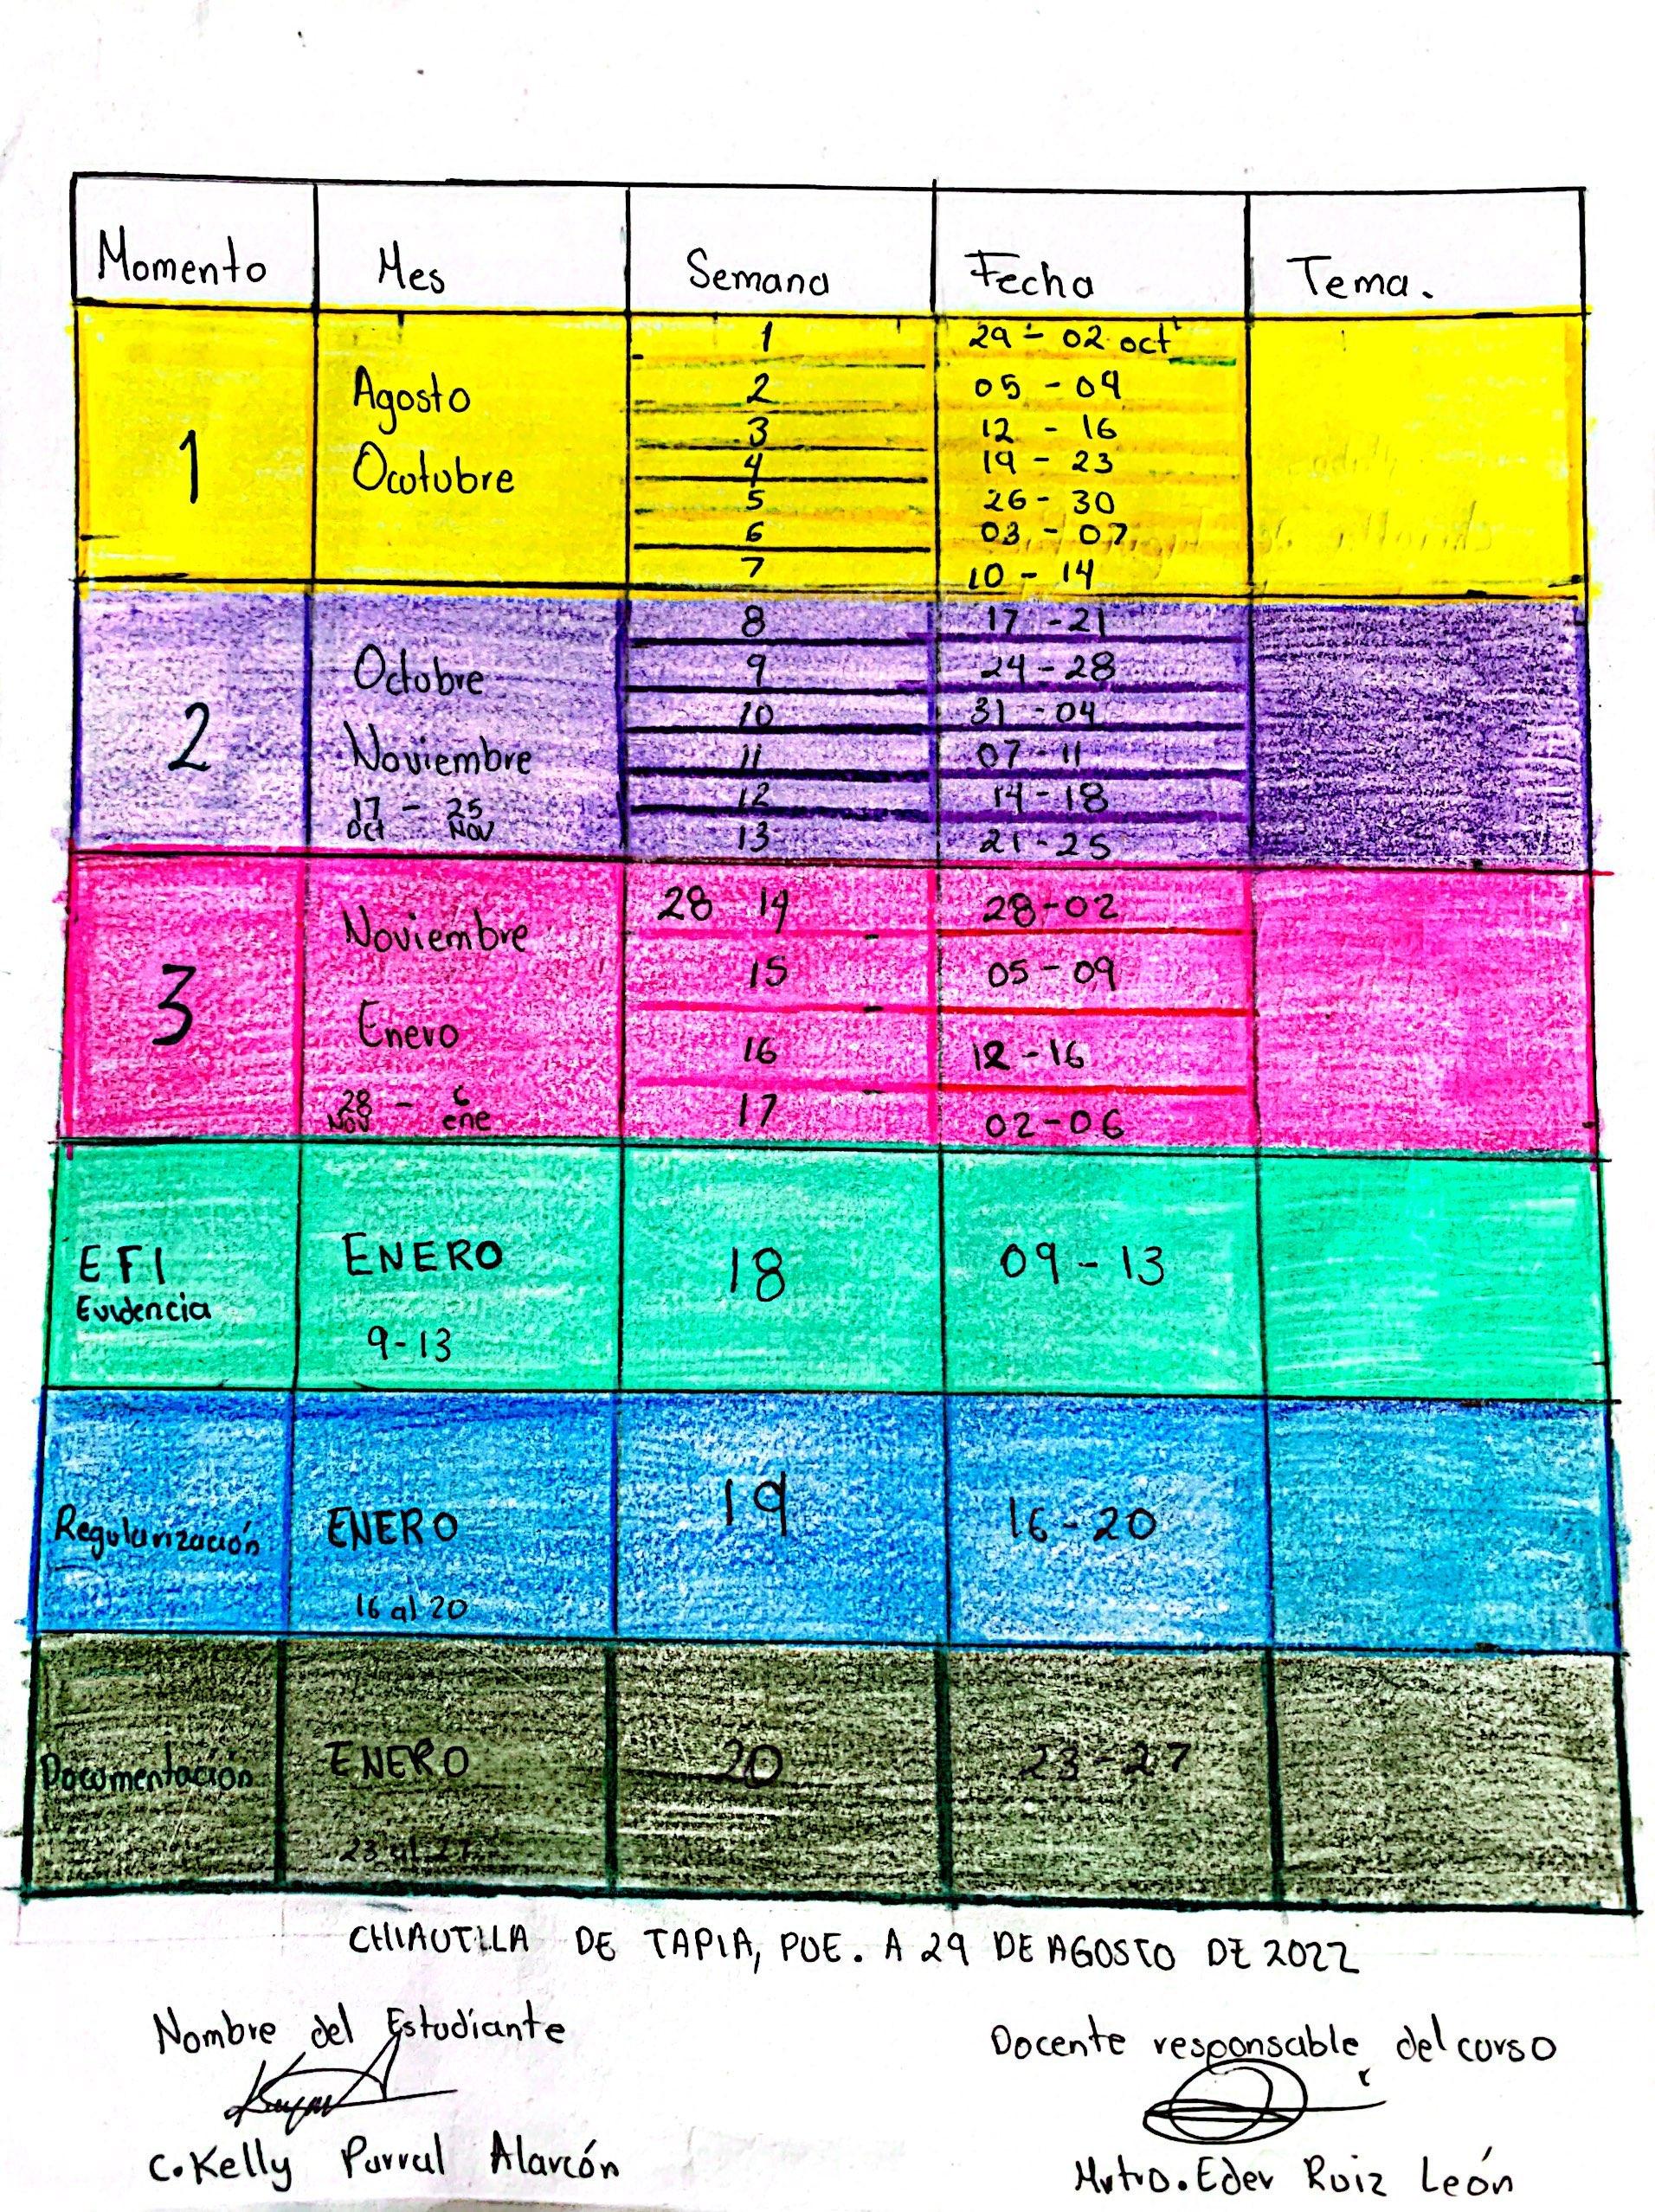 Momento Mes Semana Fecha Tema.
1 Agosto Ocotubre
1 29 - 02 oct
2 05 - 09
3 12 - 16
4 19 - 23
5 26 - 30
6 03 - 07
7 10 - 14
2 Octubre Noviembre
17 - 25
oct Nov
8 17 - 21
9 24 - 28
10 31 - 04
11 07 - 11
12 14 - 18
13 21 - 25
3 Noviembre Enero
28 - 6
Nov ene
28 14 28 - 02
15 05 - 09
16 12 - 16
17 02 - 06
EFI ENERO 18 09 - 13
Evidencia
9 - 13
Regularización ENERO 19 16 - 20
16 al 20
Documentación ENERO 20 23 - 27
23 al 27
CHIAUTLLA DE TAPIA, PUE. A 29 DE AGOSTO DE 2022
Nombre del Estudiante
Docente responsable del curso
C. Kelly Parral Alarcón
Mrtro. Eder Ruiz León